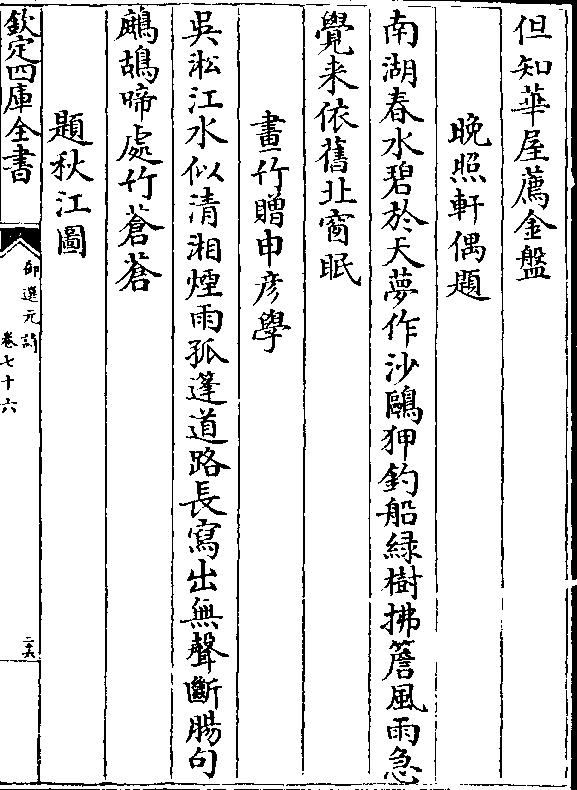 但知華屋薦金盤
晚照軒偶題
南湖春水碧於天夢作沙鷗狎釣船緑樹拂簷風雨急
覺来依舊北窗眠
畫竹贈申彦學
吳淞江水似清湘煙雨孤篷道路長寫出無聲斷腸句
鷓鴣啼處竹蒼蒼
題秋江圖
欽定四庫全書
御選元詩
卷七十六
二十六